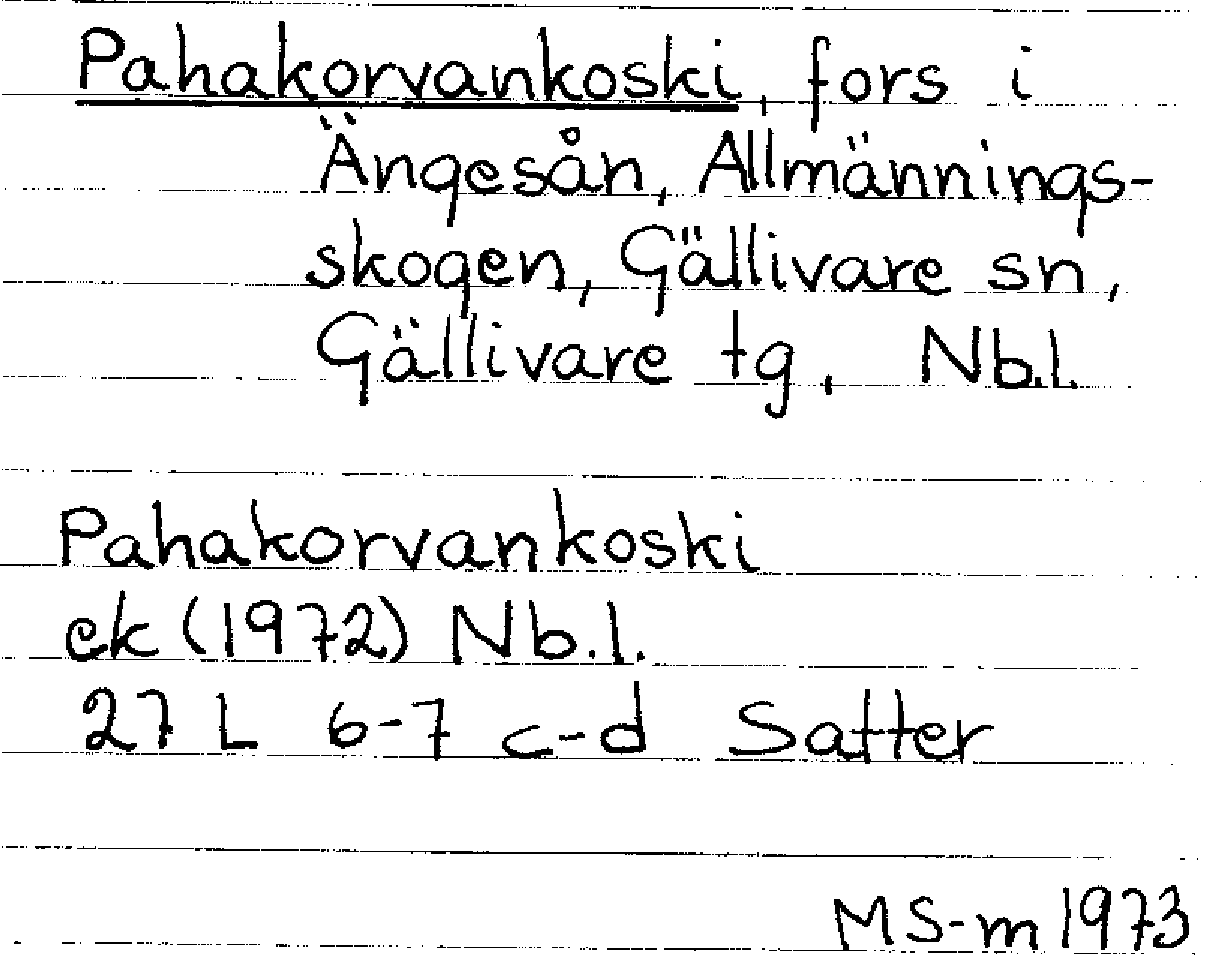 Pahakorvankoski, fors i
Ängesån, Allmännings-
skogen, Gällivare sn,
Gällivare tg, Nb.l.
Pahakorvankoski
ek (1972) Nb.l.
27 L 6-7 c-d Satter
MS-m 1973